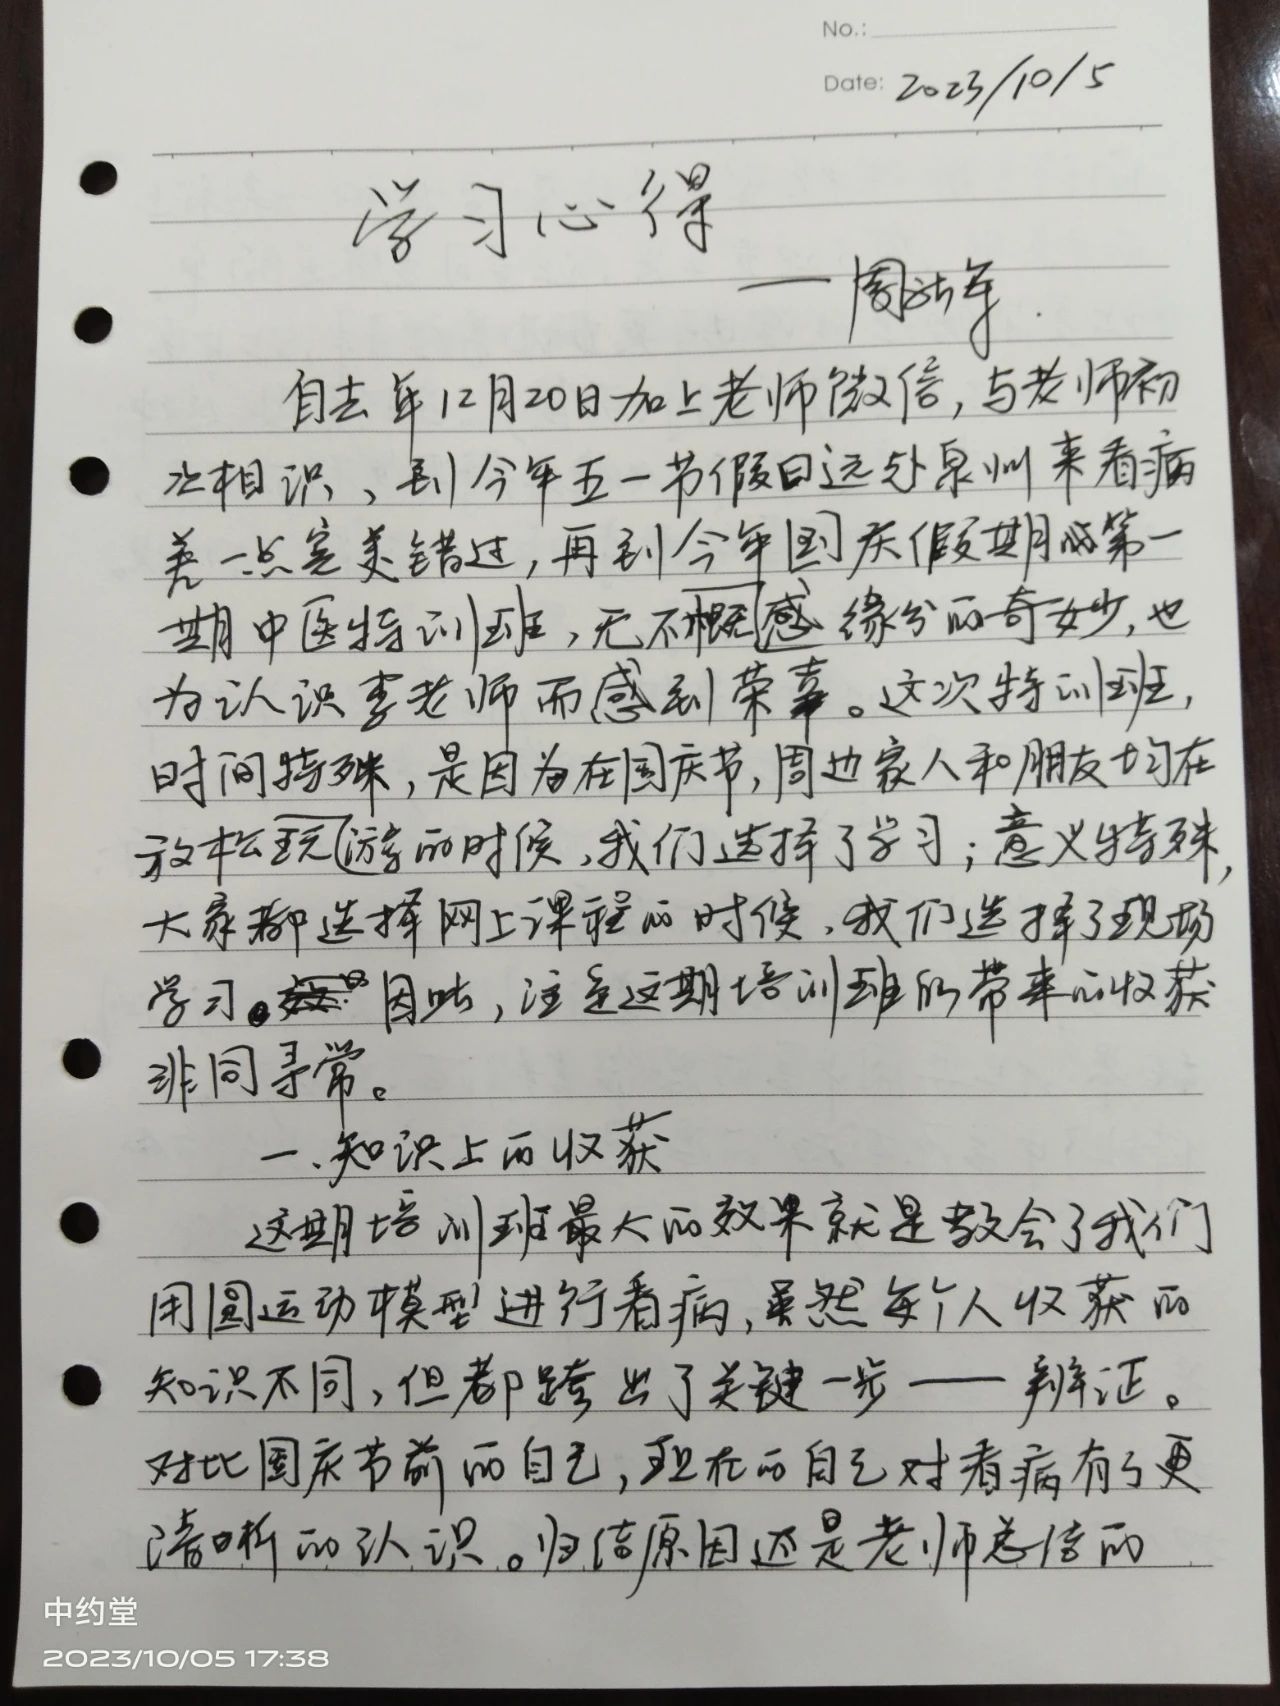 No.:
Date: 2023/10/5
学习心得
——周年
自去年12月20日加上老师微信,与老师初
次相识、到今年五一节假日远赴泉州来看病
差一点完美错过,再到今年国庆假期的第一
期中医特训班,无不概感缘分的奇妙,也
为认识李老师而感到荣幸。这次特训班,
时间特殊,是因为在国庆节,周边家人和朋友均在
放松玩游的时候,我们选择了学习;意义特殊,
大家都选择网上课程的时候,我们选择了现场
学习。因此,注定这期培训班的带来的收获
非同寻常。
一、知识上的收获
这期培训班最大的效果就是教会了我们
用圆运动模型进行看病,虽然每个人收获的
知识不同,但都跨出了关键一步——辨证。
对比国庆节前的自己,现在的自己对看病有了更
清晰的认识。归结原因还是老师总结的
中约堂
2023/10/05 17:38